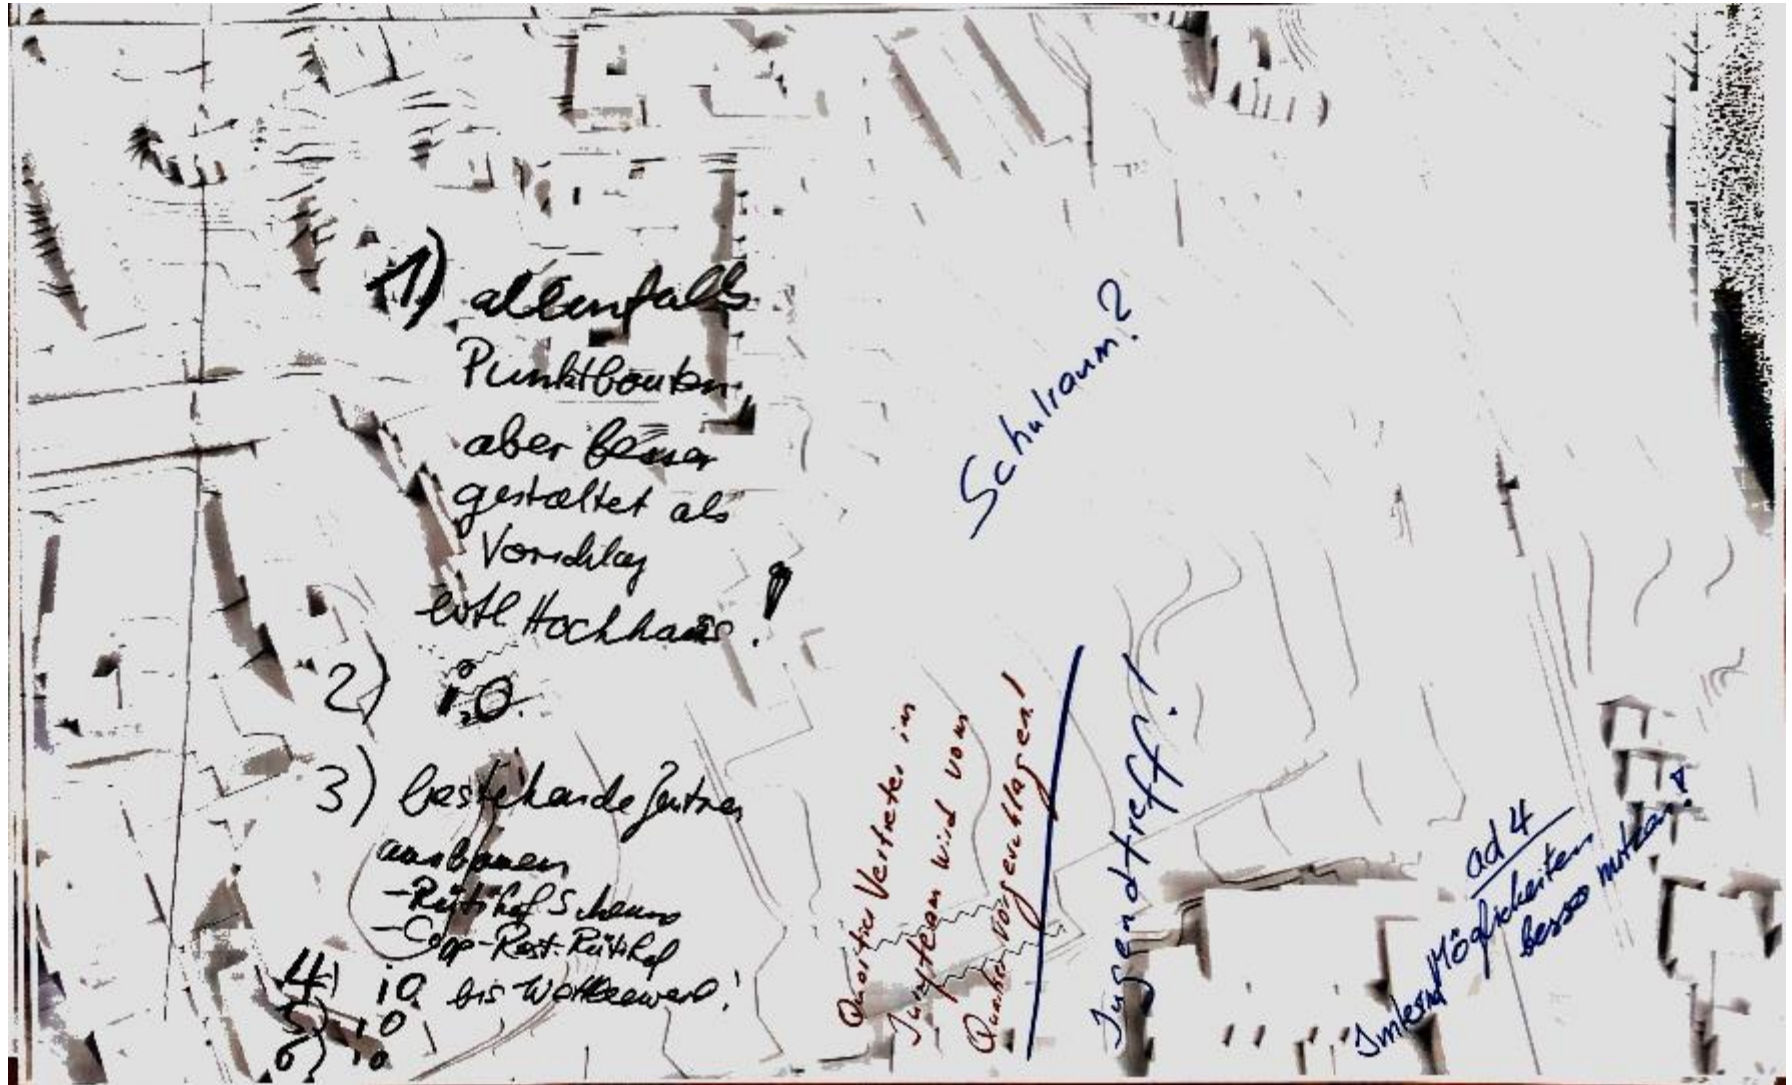 1) allenfalls
Punktbauten
aber besser
gestaltet als
Vorschlag
evtl Hochhaus!
2) i.O.
3) bestehende Zentren
ausbauen
- Rütihof Scheune
- Coop-Rest. Rütihof
4) iO bis Wettbewerb!
5) iO
6) iO
Schulraum?
Quartier Vertreter im
Juryteam wird vom
Quartier vorgeschlagen!
Jugendtreff!
ad 4
Möglichkeiten
besser nutzen!